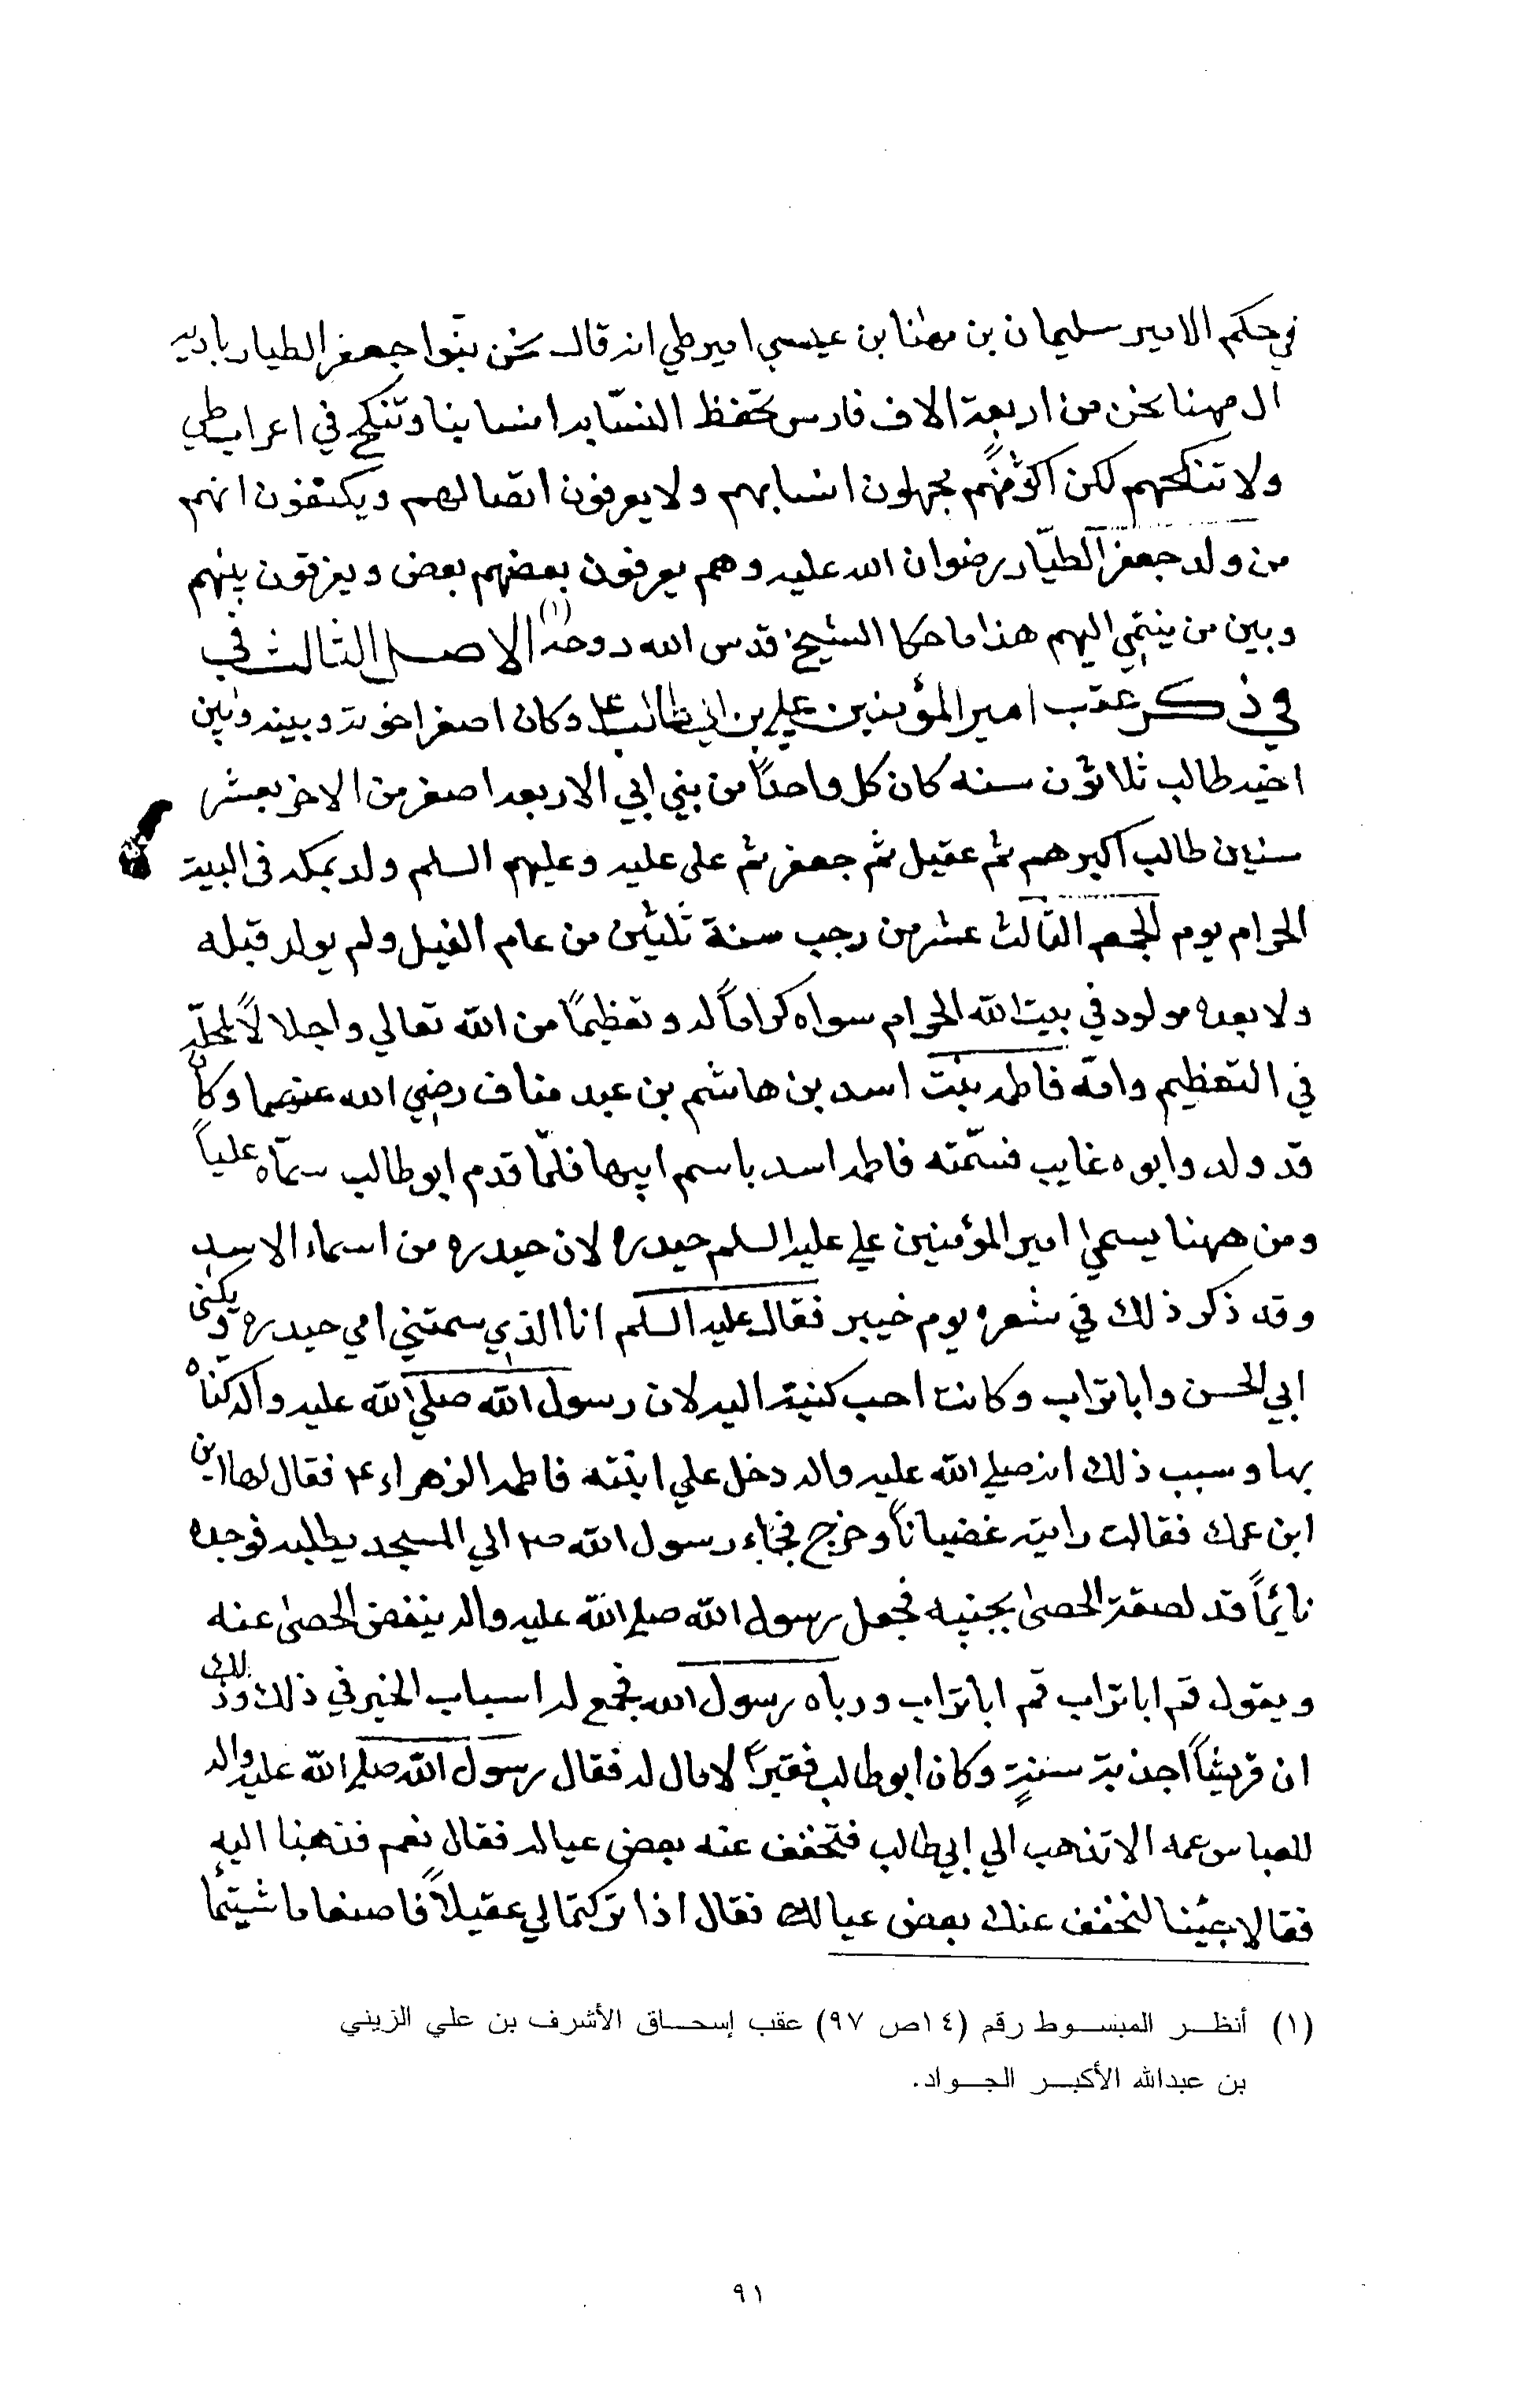 في حكم الامير سليمان بن مهنا بن عيسي امير طي انه قال نحن بنوا جعفر الطيار بادية
ال مهنا نحن من اربعة الاف فارس تحفظ النسابه انسابنا وتنكح في اعراب طي
ولا تنكحهم لكن اكثرهم يجهلون انسابهم ولا يعرفون اتصالهم ويكتفون انهم
من ولد جعفر الطيّار رضوان الله عليه وهم يعرفون بعضهم بعض ويفرقون بينهم
وبين من ينتمي اليهم هذا ما حكا الشيخ قدس الله روحه (١) الاصل الثالث في
في ذكر عقب امير المؤمنين علي بن ابي طالب ع وكان اصغر اخوته وبينه وبين
اخيه طالب ثلاثون سنه كان كل واحداً من بني ابي الاربعه اصغر من الاخر بعشر
سنين طالب اكبرهم ثم عقيل ثم جعفر ثم علی عليه وعليهم السلم ولد بمكه فى البيت
الحرام يوم الجمعه الثالث عشر من رجب سنة ثلثين من عام الفيل ولم يولد قبله
ولا بعده مولود في بيت الله الحرام سواه كراماً له وتعظيماً من الله تعالي واجلالاً لمحلّه
في التعظيم وامّه فاطمه بنت اسد بن هاشم بن عبد مناف رضي الله عنهما وكان
قد ولد وابوه غايب فسمّته فاطمه اسد باسم ابيها فلمّا قدم ابو طالب سمّاه علياً
ومن ههنا يسمىٰ امير المؤمنين علي عليه السلم حيدره لان حيدره من اسماء الاسد
وقد ذكر ذلك في شعره يوم خيبر فقال عليه السلم انا الذي سمتني امي حيدره ويكنى
ابي الحسن وابا تراب وكانت احب كنية اليه لان رسول الله صلي الله عليه واله كنّاه
بها وسبب ذلك انه صلي الله عليه واله دخل علي ابنته فاطمه الزهراء ع فقال لها اين
ابن عمك فقالت رايته غضباناً وخرج فجاء رسول الله ص الي المسجد يطلبه فوجده
نائماً قد لصقت الحصىٰ بجنبيه فجعل رسول الله صلي الله عليه واله ينفض الحصىٰ عنه
ويقول قم ابا تراب قم ابا تراب ورباه رسول الله بجمع له اسباب الخير في ذلك وذلك
ان قريشاً اجذبت سنةٍ وكان ابو طالب فقيراً لا مال له فقال رسول الله صلي الله عليه واله
للعباس عمه الا تذهب الي ابي طالب فتخفف عنه بعض عياله فقال نعم فذهبنا اليه
فقالا جئنا لنخفف عنك بعض عيالك فقال اذا تركتما لي عقيلاً فاصنعا ما شيتما
(١) أنظر المبسوط رقم (١٤ ص ٩٧) عقب إسحاق الأشرف بن علي الزيني
بن عبدالله الأكبر الجواد.
٩١